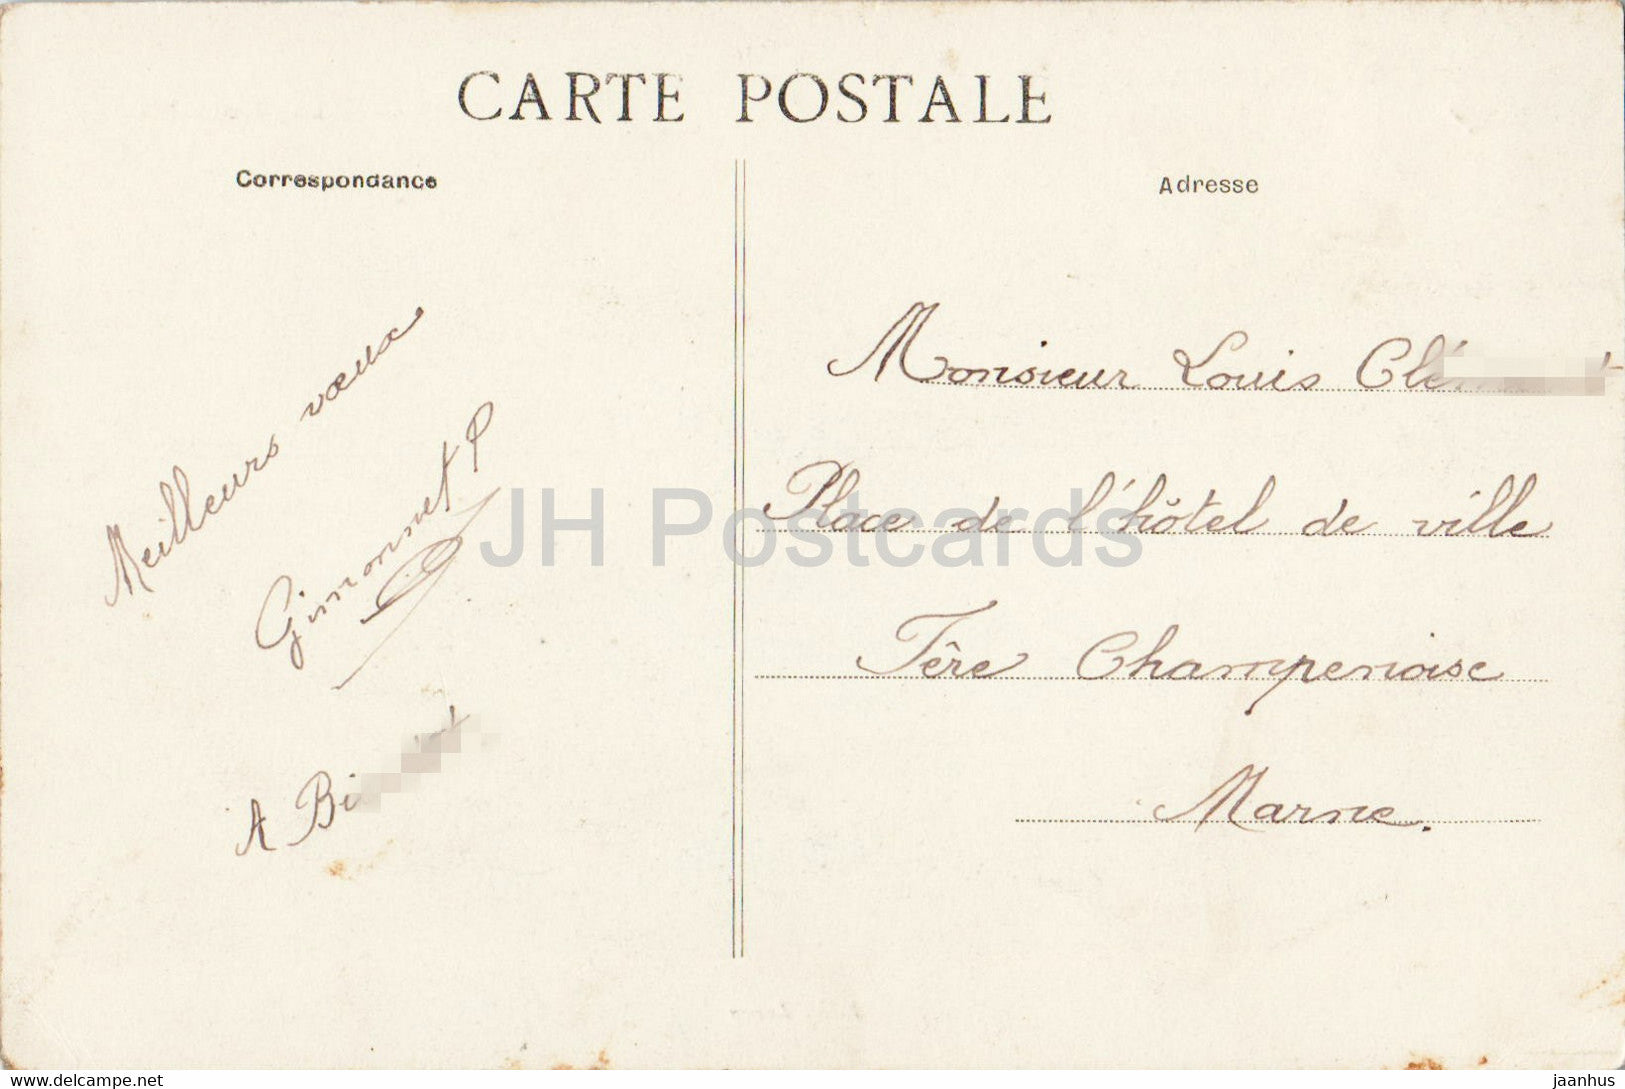 CARTE POSTALE
Correspondance
Adresse
Meilleurs vœux
Gimonnet P
A
Monsieur Louis
Place de l'hôtel de ville
Fère Champenoise
Marne.
JH Postcards
www.delcampe.net
jaanhus